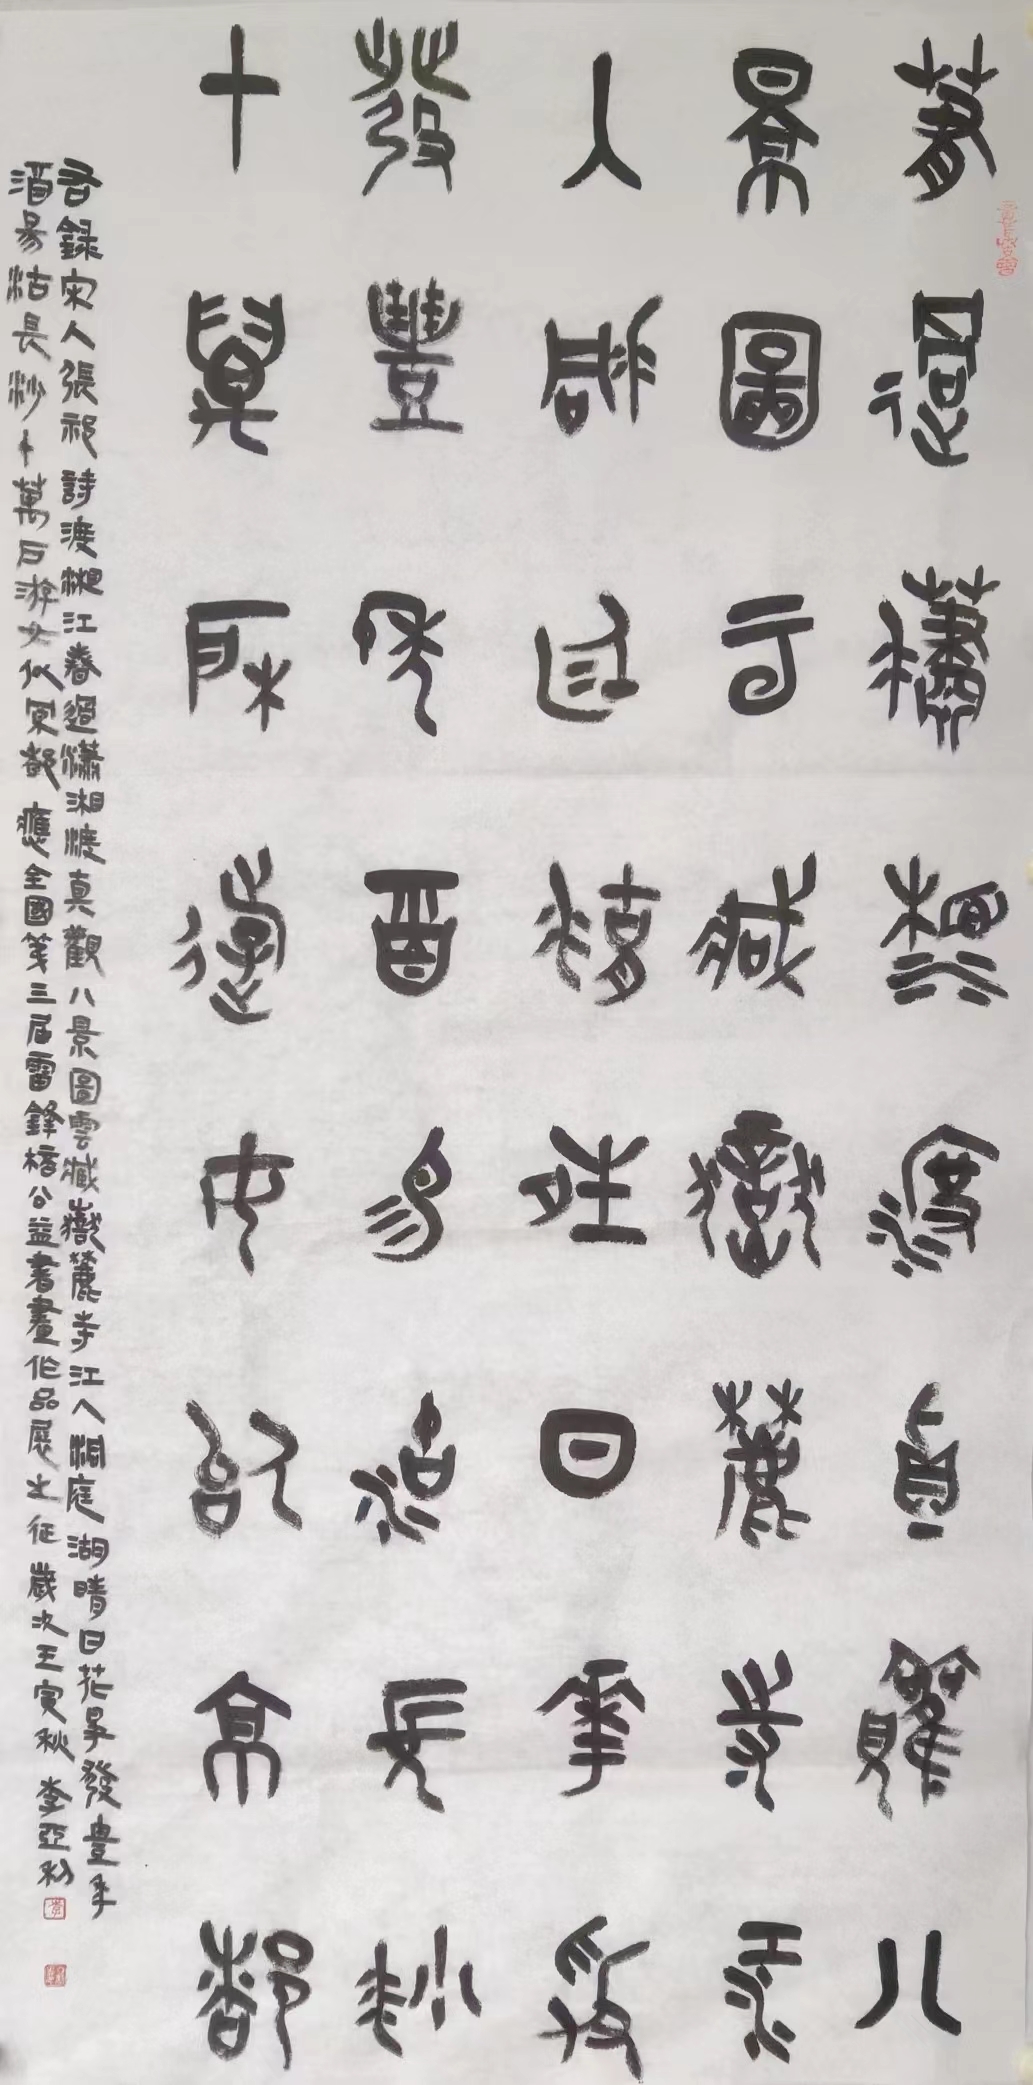 春過瀟湘渡真觀八
景圖雲藏嶽麓寺江
入洞庭湖晴日華爭
發豐年酒易沽長沙
十萬戶遊女似京都
右錄宋人張祁詩渡湘江春過瀟湘渡真觀八景圖雲藏嶽麓寺江入洞庭湖晴日花爭發豐年
酒易沽長沙十萬戶游女似京都 應全國第三屆雷鋒桮公益書畫作品展之征 歲次壬寅秋 李亞利